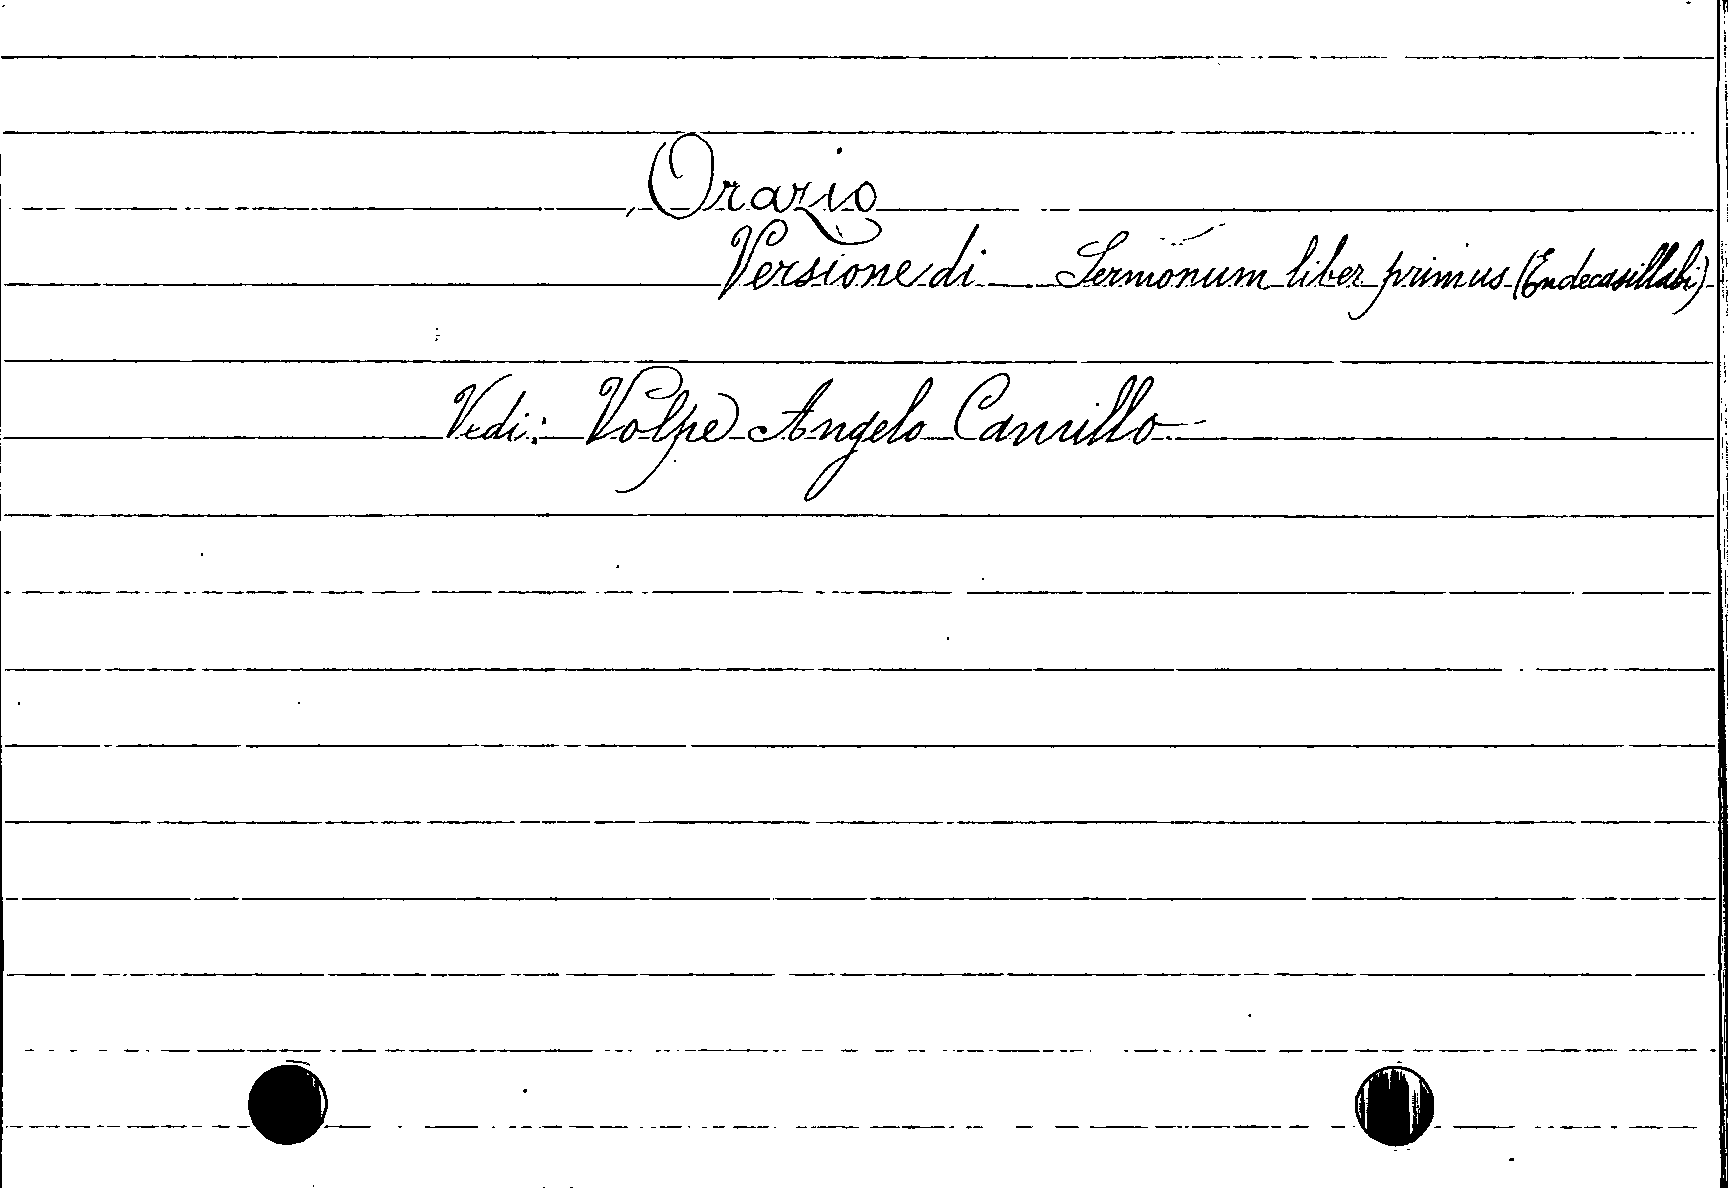 Orazio
Versione di Sermonum liber primus (Endecasillabi)
Vedi: Volpe Angelo Camillo